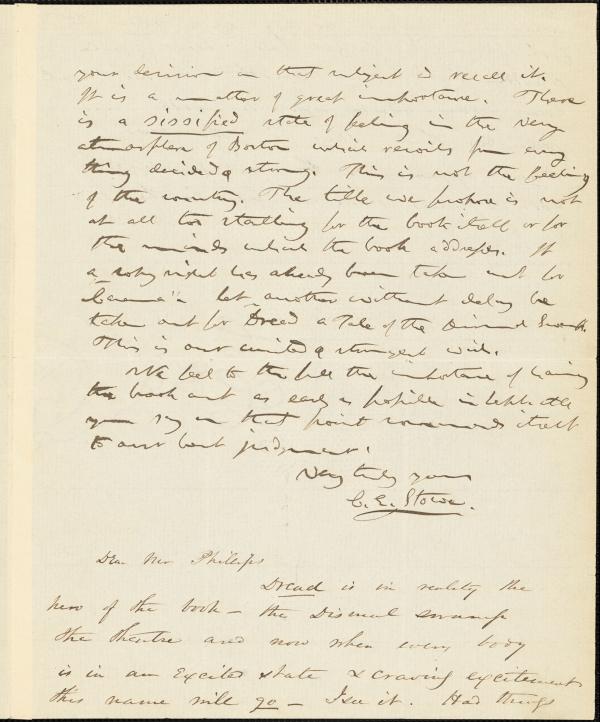 your decision on that subject & recall it.
It is a matter of great importance. There
is a sissified state of feeling in the very
atmosphere of Boston which recoils from every
thing decided & strong. This is not the feeling
of the country. The title we propose is not
at all too startling for the book itself or for
the minds which the book addresses. If
a copy right has already been taken out for
"Canema" let another without delay be
taken out for Dred a Tale of the Dismal Swamp.
This is our united & strongest wish.
We feel to the full the importance of having
the book out as early as possible in
you say on that point commends itself
to our best judgment.
Very truly yours
C. E. Stowe.
Dear Mr Phillips
Dread is in reality the
hero of the book — the Dismal swamp
the theatre and now when every body
is in an excited state & craving excitement
this name will go — I see it. Had things